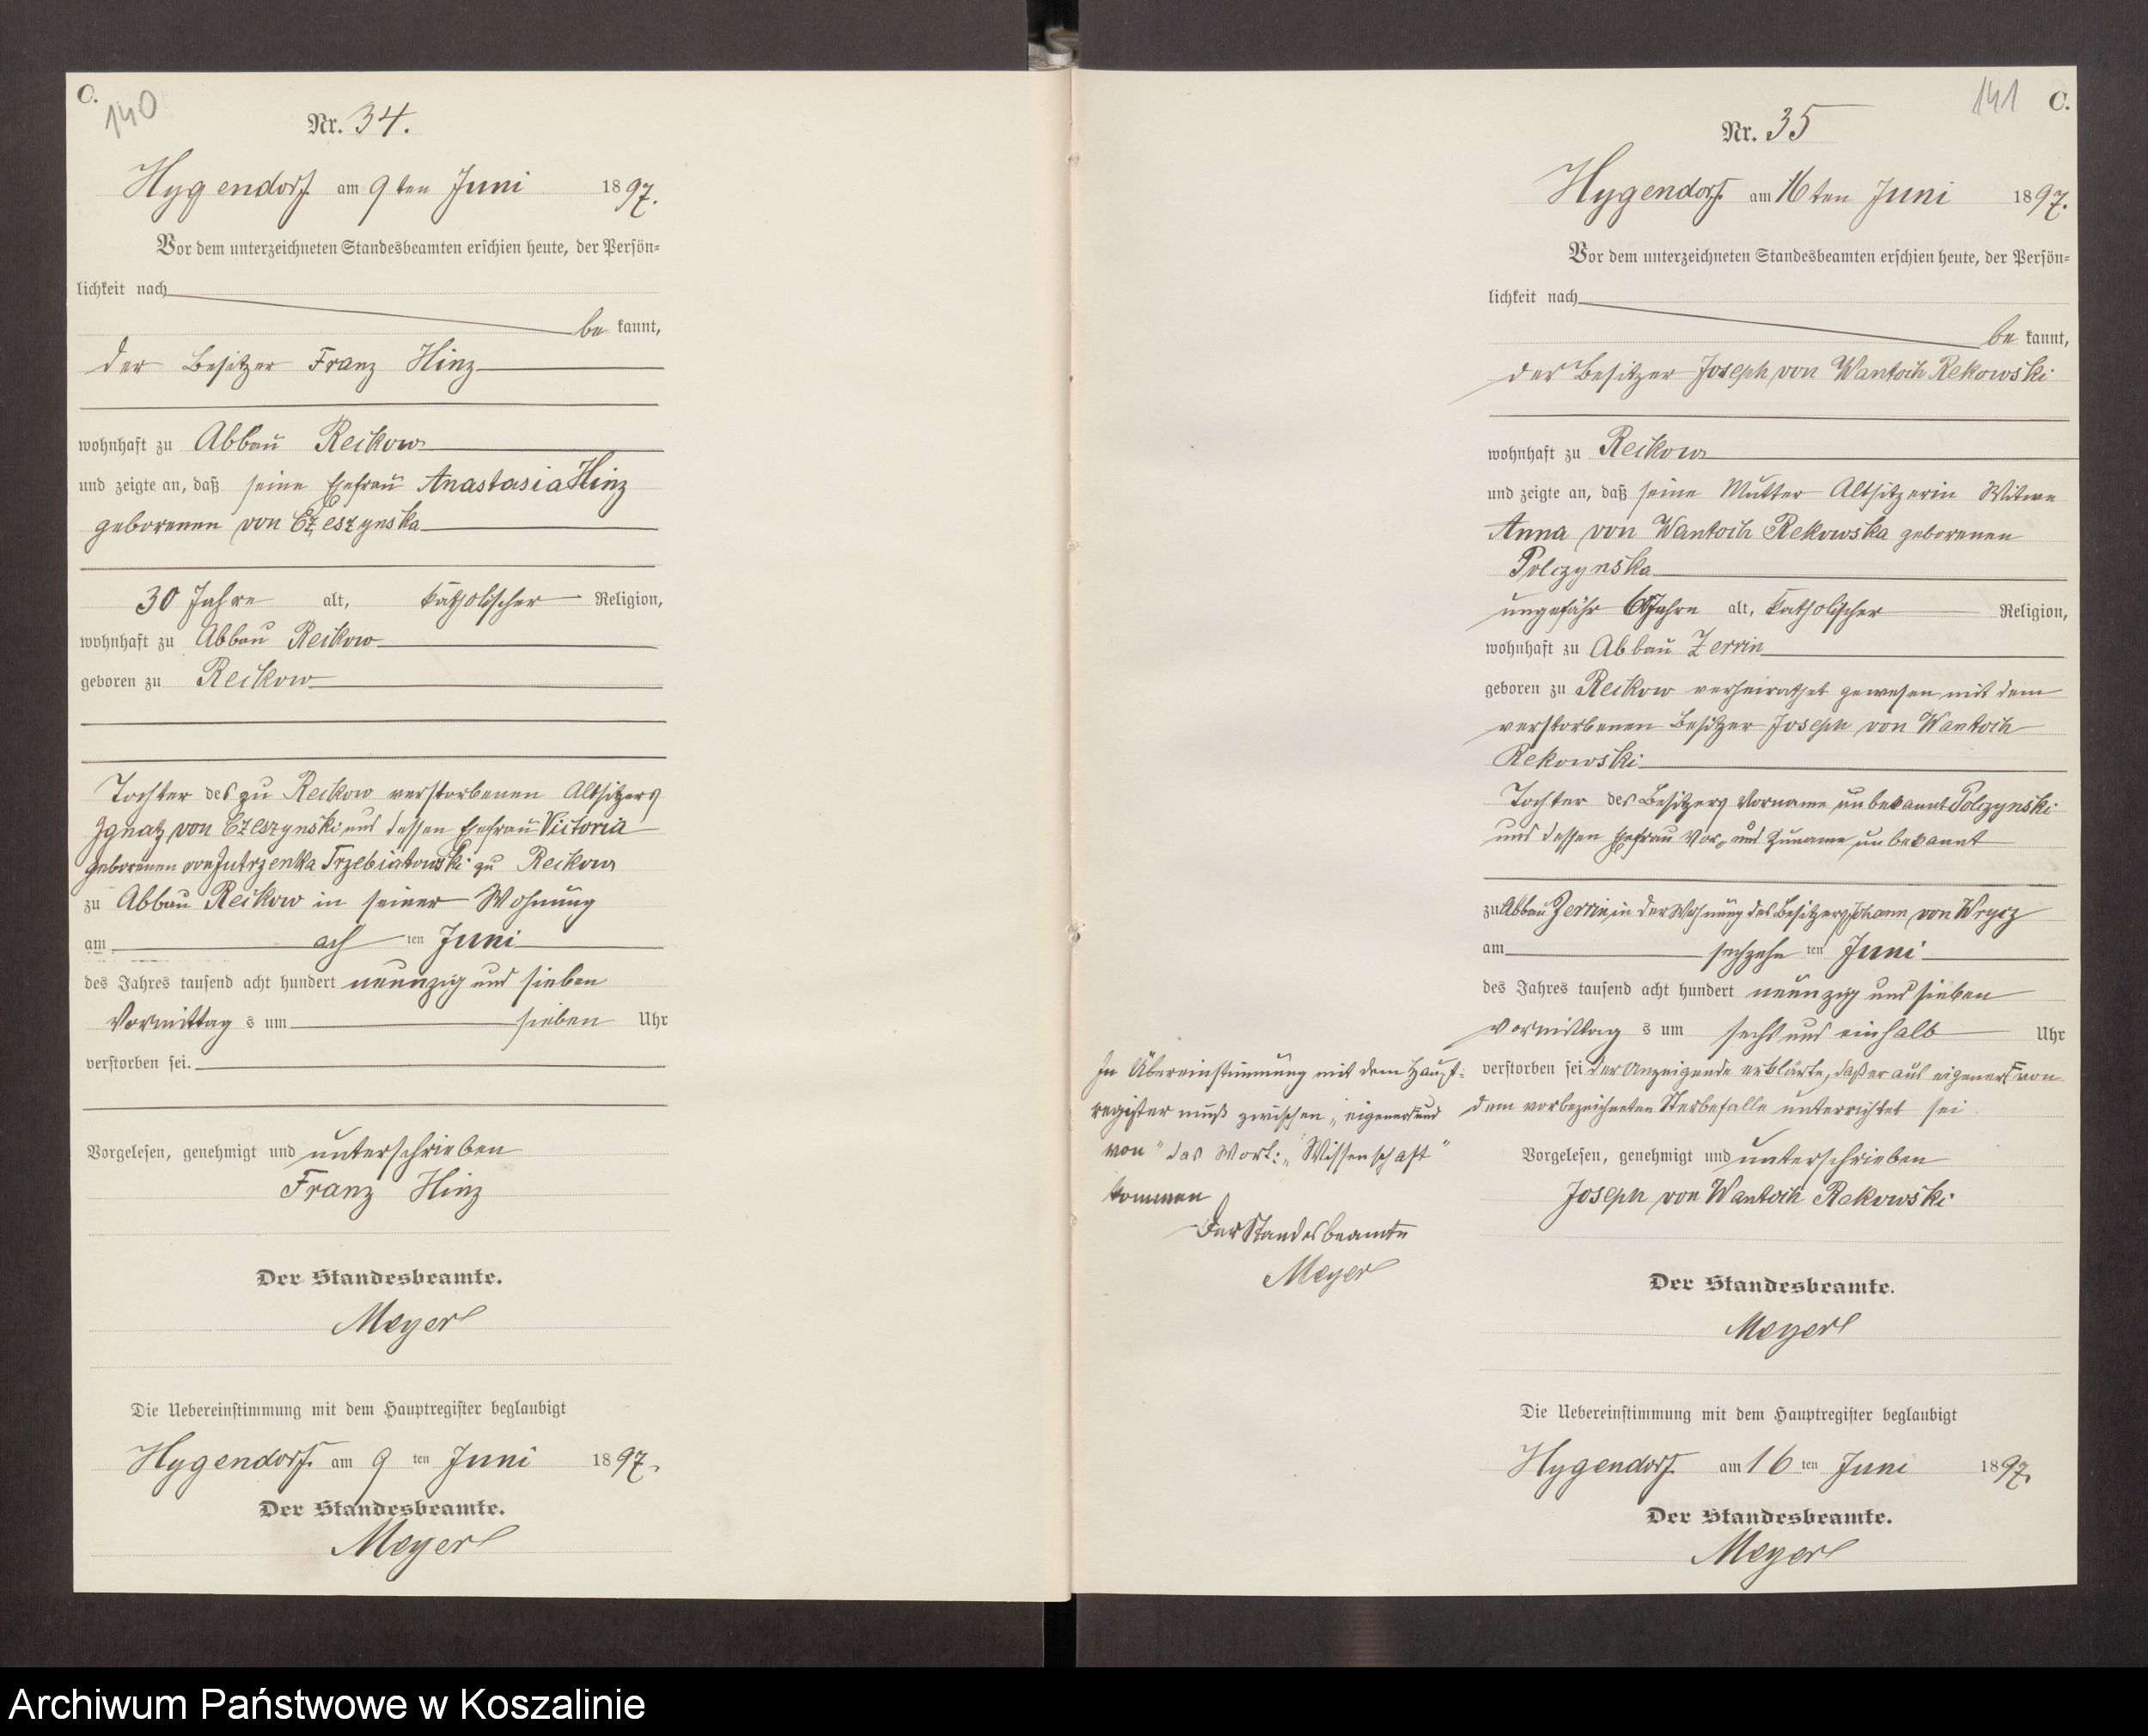 C.
140
Nr. 34.
Hygendorf am 9ten Juni 1897.
Vor dem unterzeichneten Standesbeamten erschien heute, der Persön=
lichkeit nach
be kannt,
der Besitzer Franz Hinz
wohnhaft zu Abbau Reikow
und zeigte an, daß seine Ehefrau Anastasia Hinz
geborenen von Czeszynska
30 Jahre alt, katholischer Religion,
wohnhaft zu Abbau Reikow
geboren zu Reikow
Tochter des zu Reikow verstorbenen Altsitzers
Ignatz von Czeszynski und dessen Ehefrau Victoria
geborenen von Jutrzenka Trzebiatowski zu Reikow
zu Abbau Reikow in seiner Wohnung
am ach ten Juni
des Jahres tausend acht hundert neunzig und sieben
Vormittag s um sieben Uhr
verstorben sei.
Vorgelesen, genehmigt und unterschrieben
Franz Hinz
Der Standesbeamte.
Meyer
Die Uebereinstimmung mit dem Hauptregister beglaubigt
Hygendorf. am 9 ten Juni 1897.
Der Standesbeamte.
Meyer
141 C.
Nr. 35
Hygendorf. am 16ten Juni 1897.
Vor dem unterzeichneten Standesbeamten erschien heute, der Persön=
lichkeit nach
be kannt,
der Besitzer Joseph von Wantoch Rekowski
wohnhaft zu Reikow
und zeigte an, daß seine Mutter Altsitzerin Witwe
Anna von Wantoch Rekowska geborenen
Polczynska
ungefähr Jahre alt, katholischer Religion,
wohnhaft zu Abbau Zerrin
geboren zu Reikow verheirathet gewesen mit dem
verstorbenen Besitzer Joseph von Wantoch
Rekowski
Tochter des Besitzers Vorname unbekannt Polczynski
und dessen Ehefrau Vor= und Zuname unbekannt
zu Abbau Zerrin, in der Wohnung des Besitzers Johann von Wrycz
am sechzehn ten Juni
des Jahres tausend acht hundert neunzig und sieben
vormittag s um sechs und einhalb Uhr
verstorben sei der Anzeigende erklärte, daß er aus eigener von
dem vorbezeichneten Sterbefalle unterrichtet sei
Vorgelesen, genehmigt und unterschrieben
Joseph von Wantoch Rekowski
Der Standesbeamte.
Meyer
Die Uebereinstimmung mit dem Hauptregister beglaubigt
Hygendorf. am 16 ten Juni 1897.
Der Standesbeamte.
Meyer
In Übereinstimmung mit dem Haupt=
register muß zwischen „eigener und
von" das Wort: „Wissenschaft"
kommen
Der Standesbeamte
Meyer
Archiwum Państwowe w Koszalinie